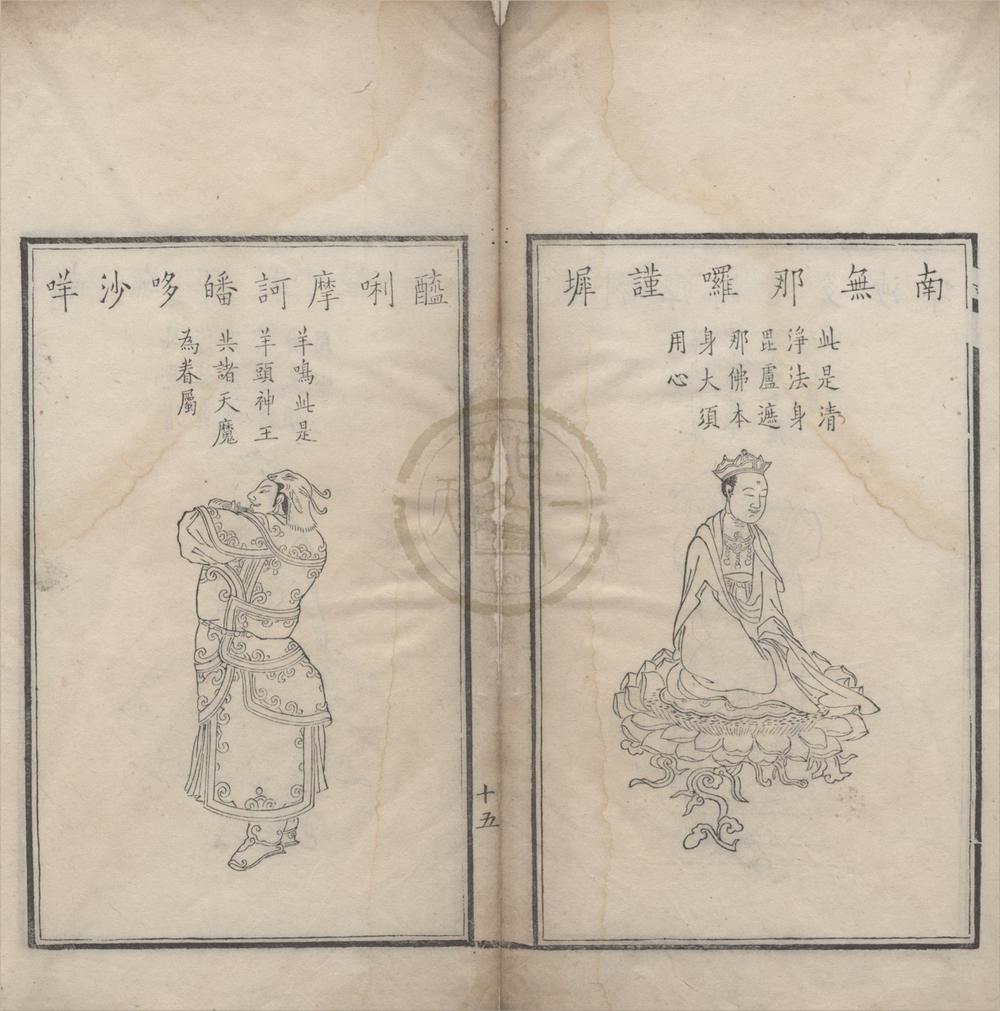 南無那囉謹墀
此是清
淨法身
毘盧遮
那佛本
身大須
用心
醯唎摩訶皤哆沙咩
羊鳴此是
羊頭神王
共諸天魔
為眷屬
十五